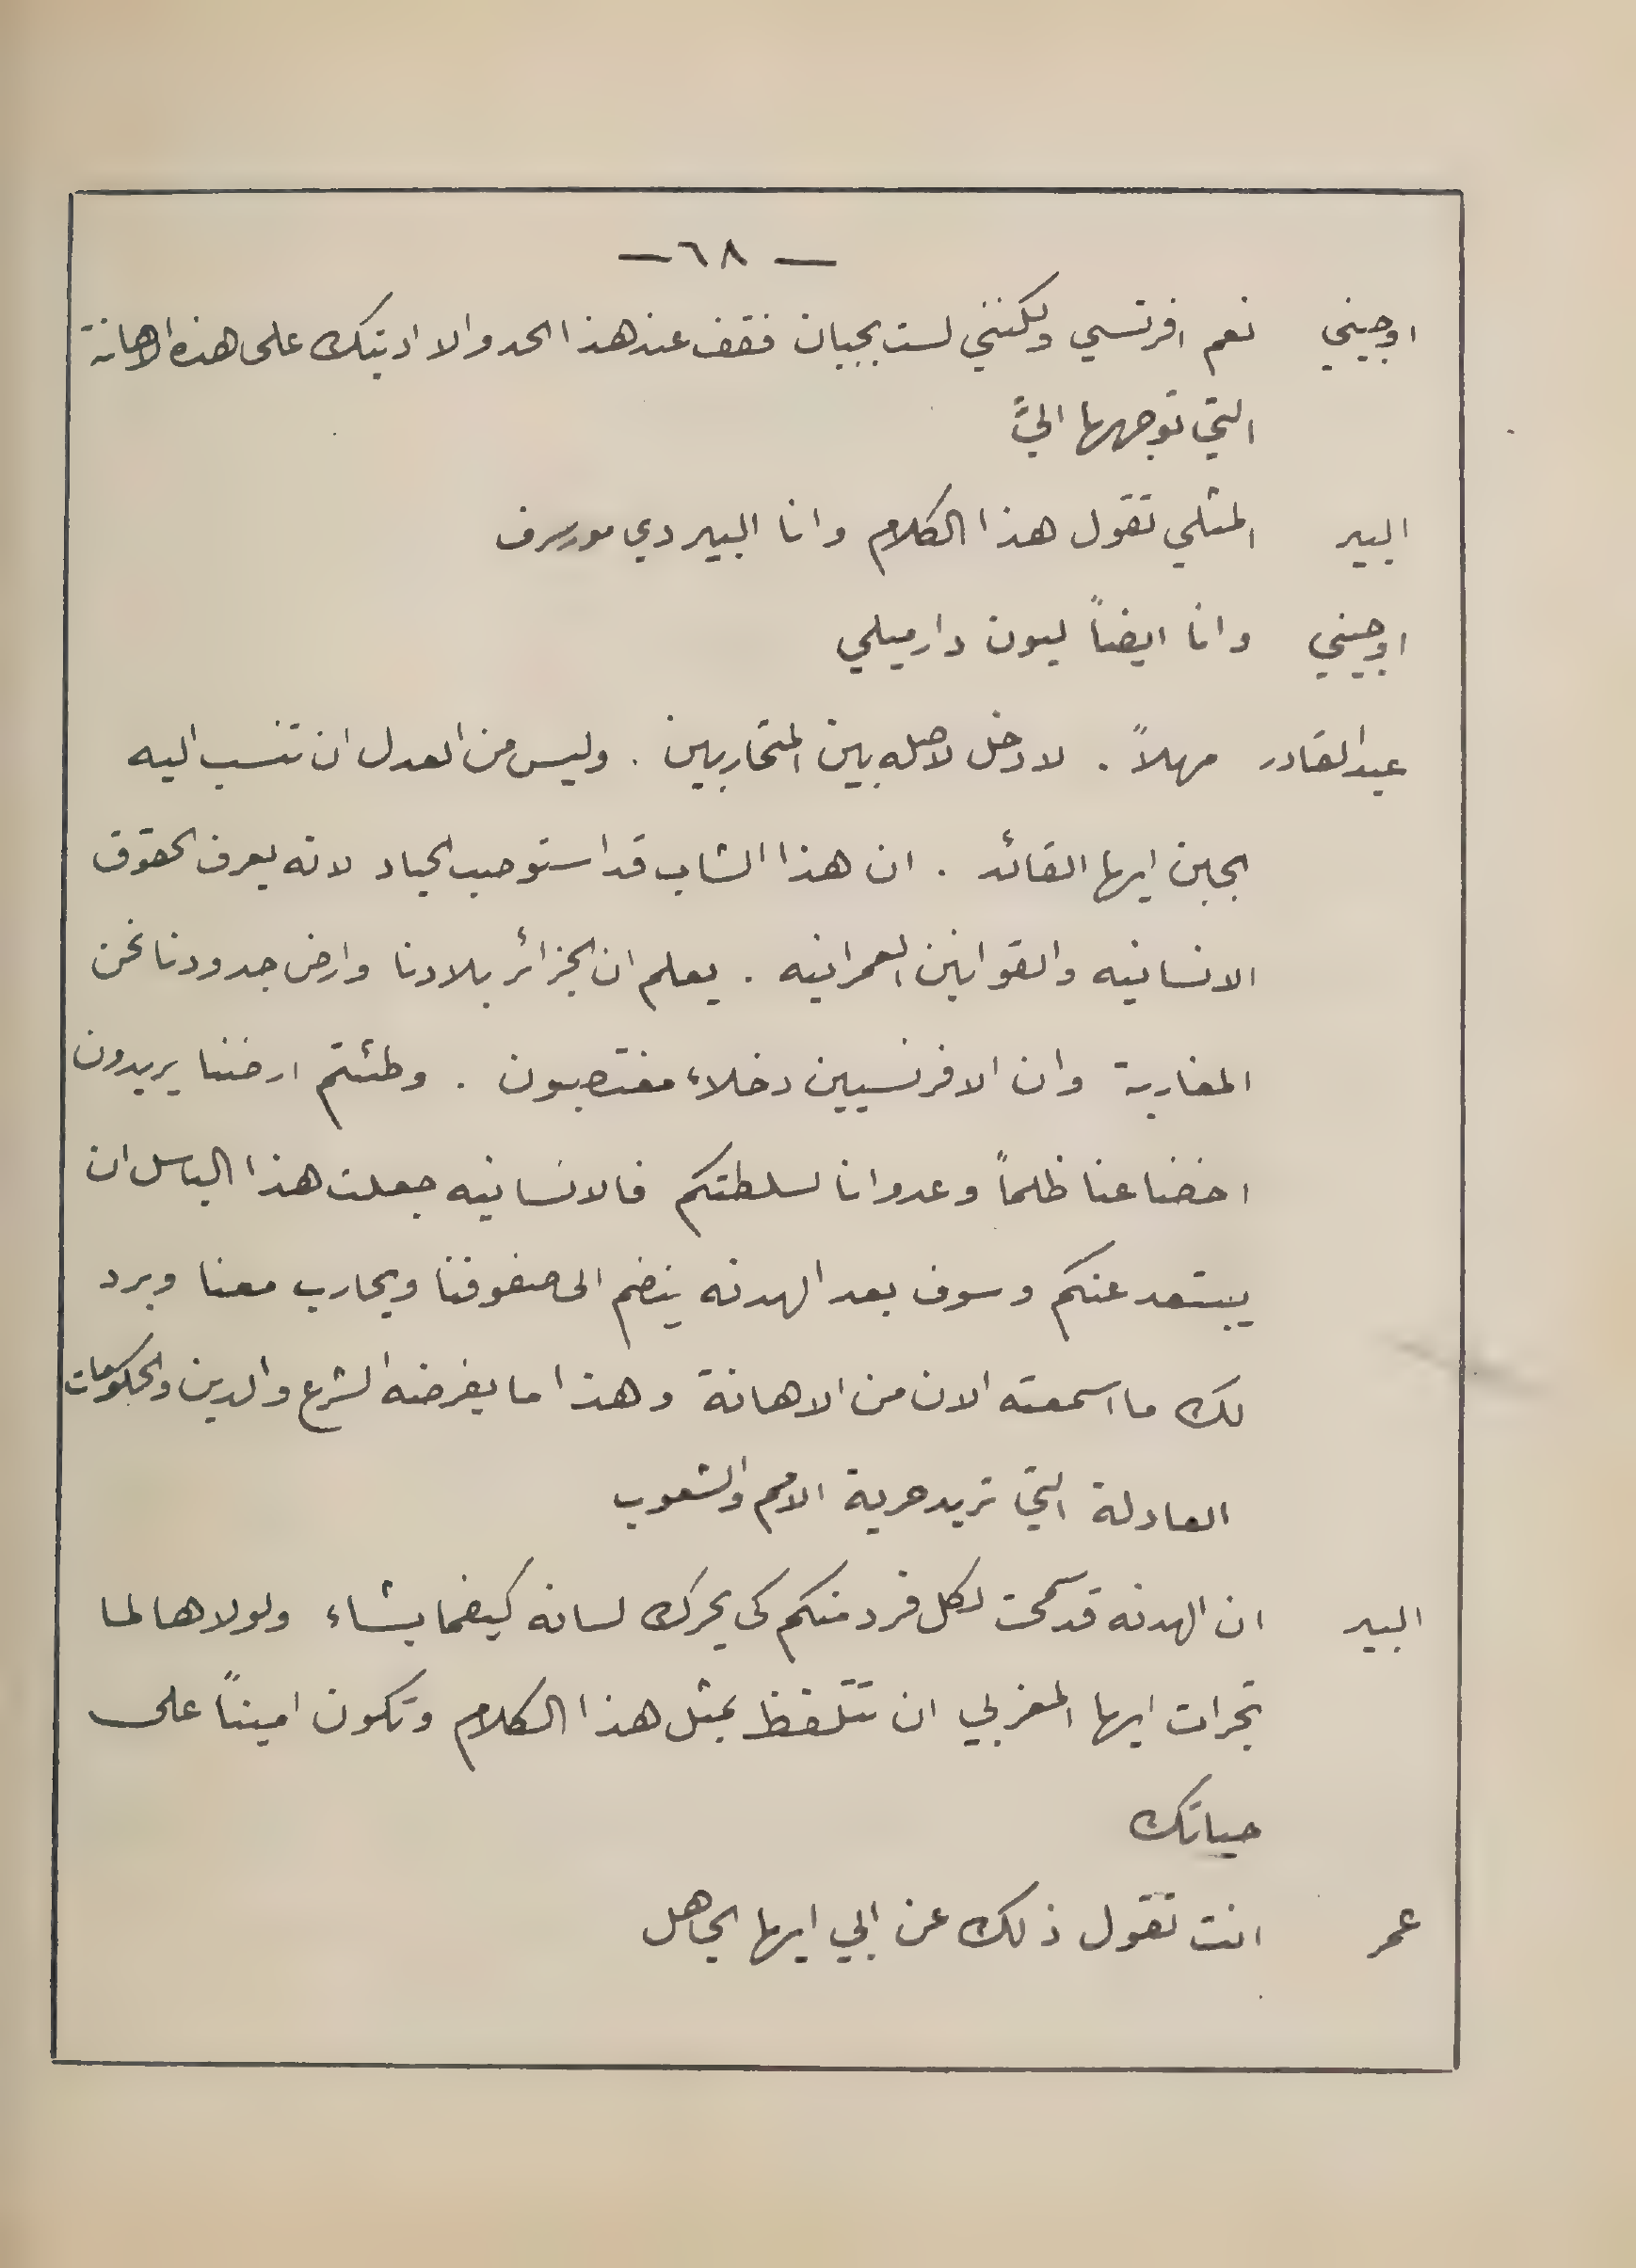 — ٦٨ —
اوجيني نعم افرنسي ولكنني لست بجبان فقف عند هذا الحد والا ادبتك على هذه الاهانة
التي توجهها اليَّ
البير المثلي تقول هذا الكلام وانا البير دي مورسرف
اوجيني وانا ايضاً ليون دارميلي
عبد القادر مهلاً . لا دخل لاصله بين المتحاربين . وليس من العدل ان تنسب اليه
الجبن ايها القائد . ان هذا الشاب قد استوجب الحياد لانه يعرف الحقوق
الانسانيه والقوانين العمرانيه . يعلم ان الجزائر بلادنا وارض جدودنا نحن
المغاربة وان الافرنسيين دخلاء مغتصبون . وطئتم ارضنا يريدون
اخضاعنا ظلماً وعدوانا لسلطتكم فالانسانيه جعلت هذا الباسل ان
يبتعد عنكم وسوف بعد الهدنه ينضم الى صفوفنا ويحارب معنا ويرد
لك ما اسمعته الان من الاهانة وهذا ما يفرضه الشرع والدين والحكومات
العادلة التي تريد حرية الامم والشعوب
البير ان الهدنه قد سمحت لكل فرد منكم كي يحرك لسانه كيفما يشاء ولولاها لما
تجرات ايها المغربي ان تتلفظ بمثل هذا الكلام وتكون اميناً على
حياتك
عمر انت تقول ذلك عن ابي ايها الجاهل